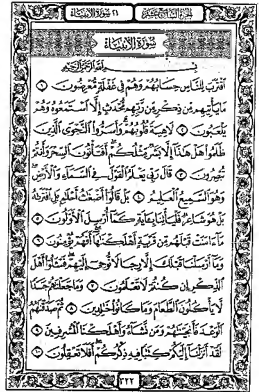 الجزء السابع عشر
٢١ سورة الأنبياء
سورة الأنبياء
بسم الله الرحمن الرحيم
ٱقْتَرَبَ لِلنَّاسِ حِسَابُهُمْ وَهُمْ فِى غَفْلَةٍ مُّعْرِضُونَ ١
مَا يَأْتِيهِم مِّن ذِكْرٍ مِّن رَّبِّهِم مُّحْدَثٍ إِلَّا ٱسْتَمَعُوهُ وَهُمْ
يَلْعَبُونَ ٢ لَاهِيَةً قُلُوبُهُمْ وَأَسَرُّوا۟ ٱلنَّجْوَى ٱلَّذِينَ
ظَلَمُوا۟ هَلْ هَٰذَآ إِلَّا بَشَرٌ مِّثْلُكُمْ أَفَتَأْتُونَ ٱلسِّحْرَ وَأَنتُمْ
تُبْصِرُونَ ٣ قَالَ رَبِّى يَعْلَمُ ٱلْقَوْلَ فِى ٱلسَّمَآءِ وَٱلْأَرْضِ
وَهُوَ ٱلسَّمِيعُ ٱلْعَلِيمُ ٤ بَلْ قَالُوٓا۟ أَضْغَٰثُ أَحْلَٰمٍ بَلِ ٱفْتَرَىٰهُ
بَلْ هُوَ شَاعِرٌ فَلْيَأْتِنَا بِـَٔايَةٍ كَمَآ أُرْسِلَ ٱلْأَوَّلُونَ ٥
مَآ ءَامَنَتْ قَبْلَهُم مِّن قَرْيَةٍ أَهْلَكْنَٰهَآ أَفَهُمْ يُؤْمِنُونَ ٦
وَمَآ أَرْسَلْنَا قَبْلَكَ إِلَّا رِجَالًا نُّوحِىٓ إِلَيْهِمْ فَسْـَٔلُوٓا۟ أَهْلَ
ٱلذِّكْرِ إِن كُنتُمْ لَا تَعْلَمُونَ ٧ وَمَا جَعَلْنَٰهُمْ جَسَدًا
لَّا يَأْكُلُونَ ٱلطَّعَامَ وَمَا كَانُوا۟ خَٰلِدِينَ ٨ ثُمَّ صَدَقْنَٰهُمُ
ٱلْوَعْدَ فَأَنجَيْنَٰهُمْ وَمَن نَّشَآءُ وَأَهْلَكْنَا ٱلْمُسْرِفِينَ ٩
لَقَدْ أَنزَلْنَآ إِلَيْكُمْ كِتَٰبًا فِيهِ ذِكْرُكُمْ أَفَلَا تَعْقِلُونَ ١٠
٣٢٢